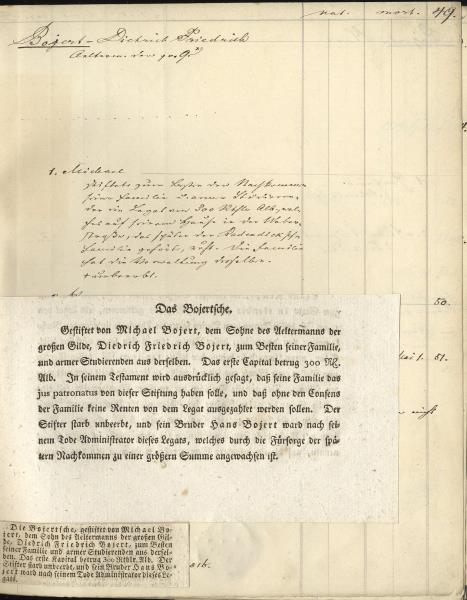 nat. mort. 49.
Bojert - Dietrich Friedrich
Aelterm. der gr. G.
1. Michael
stiftete zum Besten der Nachkommen
seiner Familie u. armer Studieren-
der ein Legat von 300 Rthlr Alb., wel-
ches auf seinem Hause in der Weber-
straße, das später der
Familie gehört, ruht. Die Familie
hat die Verwaltung desselben.
† unbeerbt.
50.
Das Bojertsche.
Gestiftet von Michael Bojert, dem Sohne des Aeltermanns der
großen Gilde, Diedrich Friedrich Bojert, zum Besten seiner Familie,
und armer Studierenden aus derselben. Das erste Capital betrug 300 Rthlr.
Alb. In seinem Testament wird ausdrücklich gesagt, daß seine Familie das
jus patronatus von dieser Stiftung haben solle, und daß ohne den Consens
der Familie keine Renten von dem Legat ausgezahlt werden sollen. Der
Stifter starb unbeerbt, und sein Bruder Hans Bojert ward nach sei-
nem Tode Administrator dieses Legats, welches durch die Fürsorge der spä-
tern Nachkommen zu einer größern Summe angewachsen ist.
1. 51.
nicht
Die Bojertsche, gestiftet von Michael Bo-
jert, dem Sohn des Aeltermanns der großen Gil-
de, Diedrich Friedrich Bojert, zum Besten
seiner Familie und armer Studierenden aus dersel-
ben. Das erste Kapital betrug 300 Rthlr. Alb. Der
Stifter starb unbeerbt, und sein Bruder Hans Bo-
jert ward nach seinem Tode Administrator dieses Le-
gats.